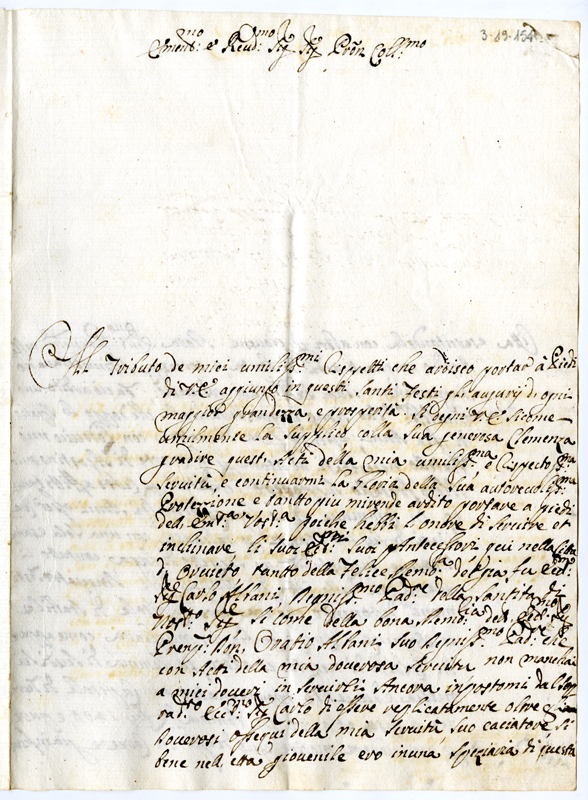 3-19-154
Emen:mo e Revd:mo Sig:r Sig:r Pron Coll:mo
Al Tributo de miei umiliss:mi Rispetti che ardisco portar à Piedi
di V:E: aggiungo in questi Santi Festi gl'augurij di ogni
maggior grandezza, e prosperità. Si degni V:E: sicome
umilmente La Supplico colla Sua generosa Clemenza
gradire questi Atti della mia umiliss:ma e Rispetto:sa
Servitù, e continuarmi La Gloria della Sua autorevoliss:ma
Protezione e tantto più mirende ardito portare a piedi
dell Em:za Vost:a poiche hebbi l'onore di Servire et
inclinare li Suoi Ecc:mi Suoi Antecessori qui nella Citta
d'Orvieto tantto della Felice Memo:a dell
Sig:r Carlo Albani Degniss:mo Pad:re della Santità di
Nost:o Sig:re Si come della bona Memo:ria dell Ecc:mo Sig:r
Prenp:e Don Oratio Albani Suo Degniss:mo Pad:re che
con Atti della mia doverosa Servitù non mancai
a miei doveri in Servirli Ancora inpostomi dal Sop
rad:to Ecc:mo Sig:r Carlo di essere replicatamente oltre
doverosi Ossequi della mia Servitù, suo caciatore Si
bene nell'età giovenile ero in una speziaria di questa